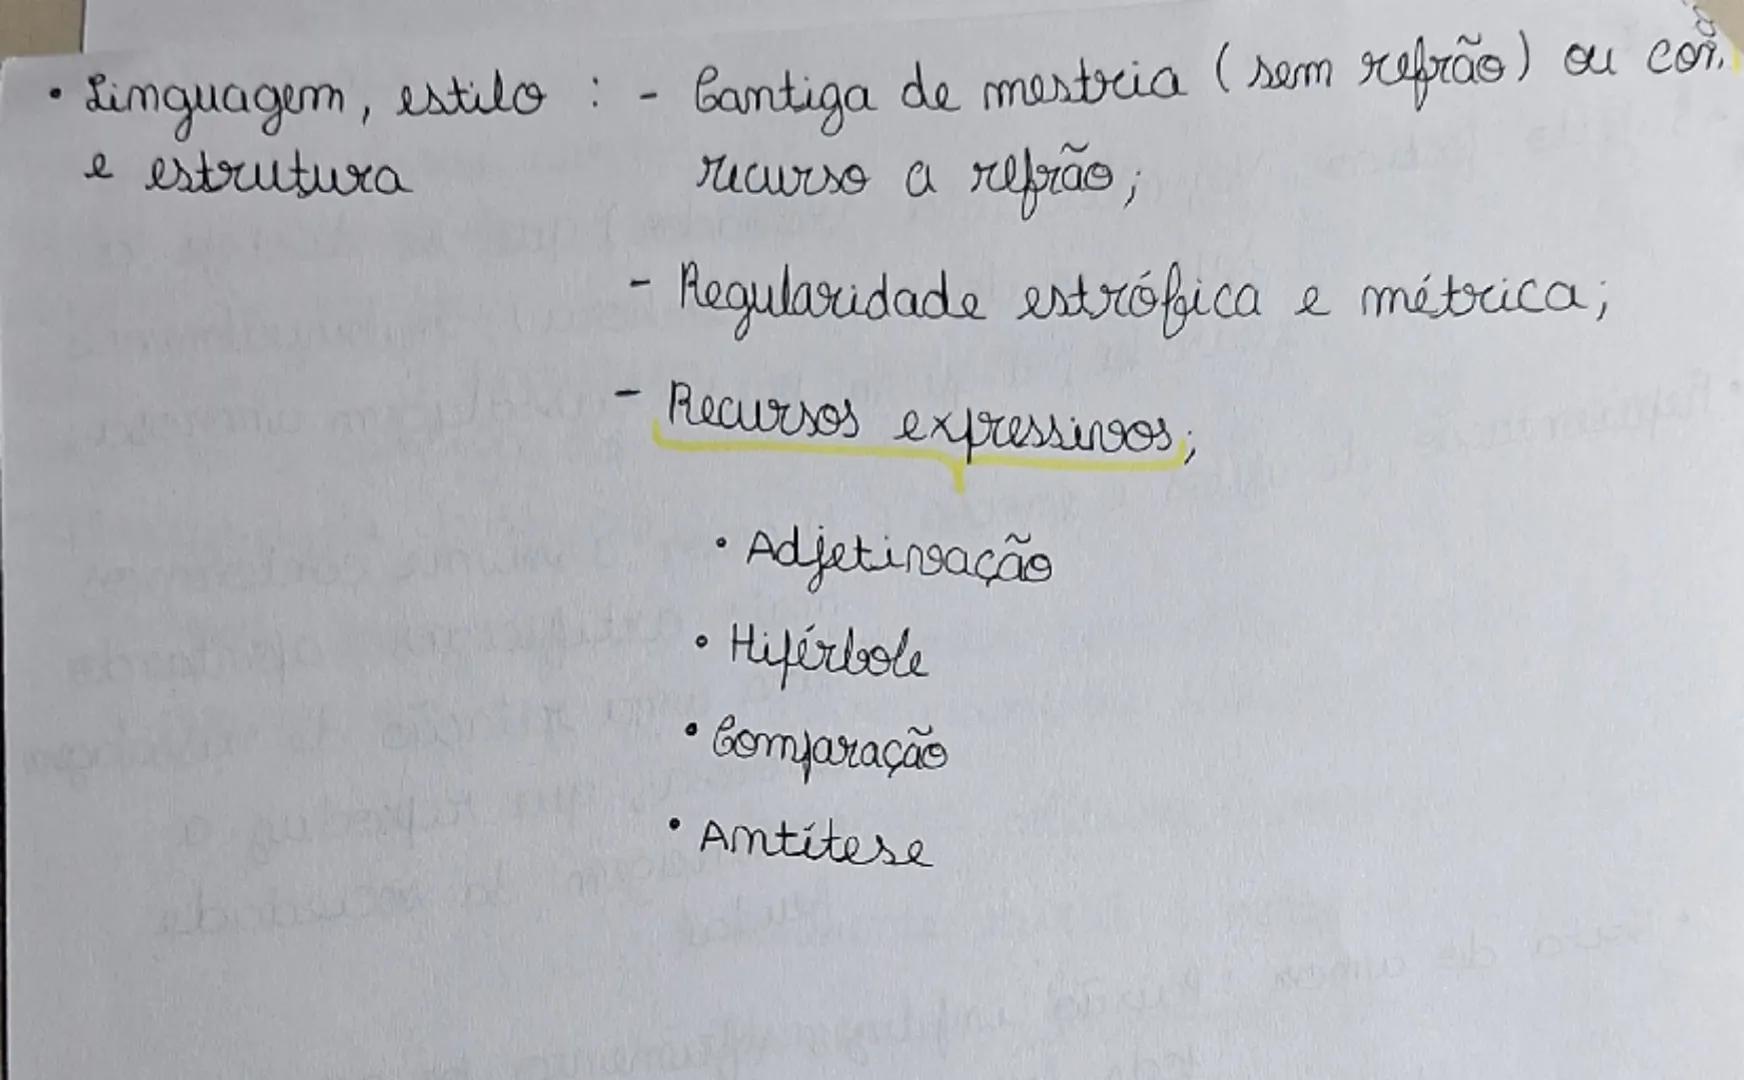 • Linguagem, estilo : - Cantiga de mestria (sem refrão) ou com
e estrutura recurso a refrão;
- Regularidade estrófica e métrica;
- Recursos expressivos;
• Adjetivação
• Hipérbole
• Comparação
• Antítese